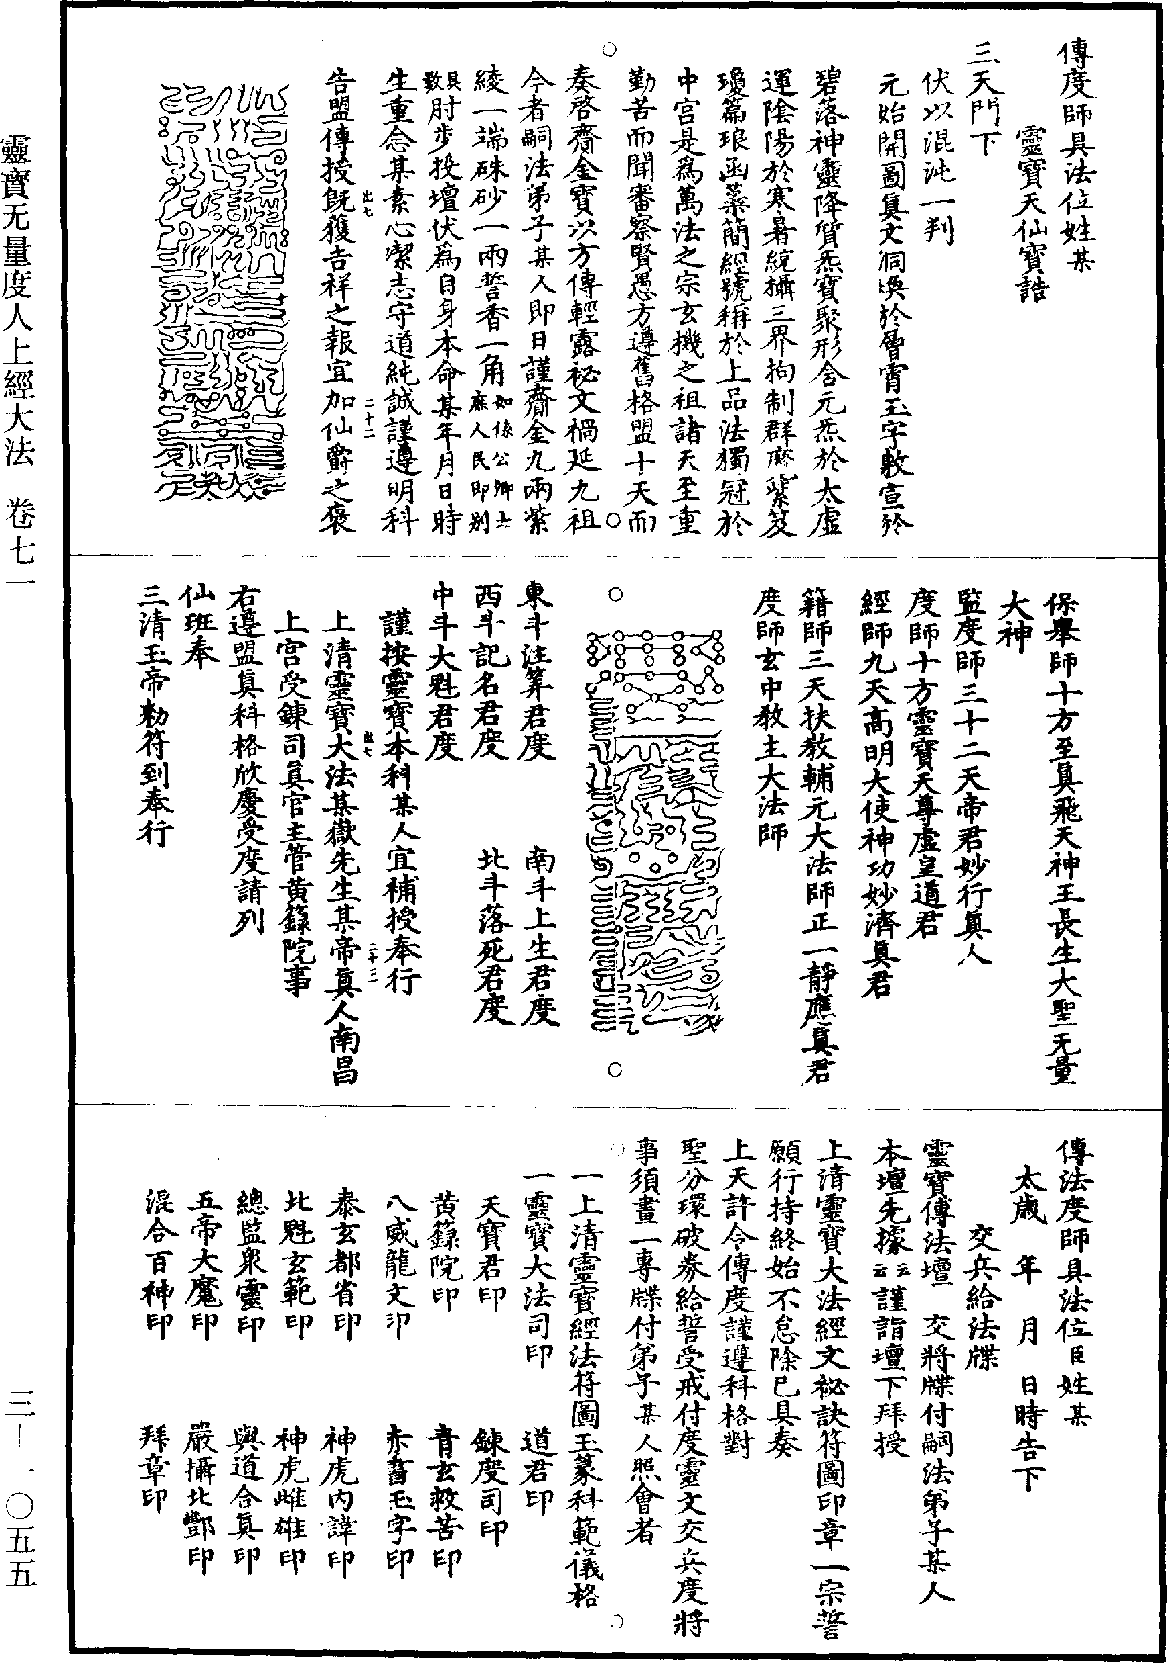 傳度師具法位姓某
靈寶天仙寶誥
三天門下
伏以混沌一判
元始開圖真文洞煥於層霄玉字敷宣於
碧落神靈降質炁寶聚形含元炁於太虛
運陰陽於寒暑統攝三界拘制群魔蘂笈
瓊篇琅函蘂簡經號稱於上品法獨冠於
中宮是為萬法之宗玄機之祖諸天至重
勤苦而聞審察賢愚方遵舊格盟十天而
奏啓齎金寶以方傳輕露祕文禍延九祖
今者嗣法弟子某人即日謹齎金九兩紫
綾一端硃砂一兩誓香一角如係公卿士庶人民即別
具數肘步投壇伏為自身本命某年月日時
生重念某素心潔志守道純誠謹遵明科
告盟傳授既獲吉祥之報宜加仙爵之褒
出七
二十二
保舉師十方至真飛天神王長生大聖无量
大神
監度師三十二天帝君妙行真人
度師十方靈寶天尊虛皇道君
經師九天高明大使神功妙濟真君
籍師三天扶教輔元大法師正一靜應真君
度師玄中教主大法師
東斗注筭君度 南斗上生君度
西斗記名君度 北斗落死君度
中斗大魁君度
謹按靈寶本科某人宜補授奉行
出七
二十三
上清靈寶大法某嶽先生某帝真人南昌
上宮受鍊司真官主管黃籙院事
右遵盟真科格欣慶受度請列
仙班奉
三清玉帝勑符到奉行
傳法度師具法位臣姓某
太歲 年 月 日時告下
交兵給法牒
靈寶傳法壇 交將牒付嗣法弟子某人
本壇先據云云謹詣壇下拜授
上清靈寶大法經文祕訣符圖印章一宗誓
願行持終始不怠除已具奏
上天許令傳度謹遵科格對
聖分環破券給誓受戒付度靈文交兵度將
事須畫一專牒付弟子某人照會者
一上清靈寶經法符圖玉篆科範儀格
一靈寶大法司印 道君印
天寶君印 鍊度司印
黃籙院印 青玄救苦印
八威龍文印 赤書玉字印
泰玄都省印 神虎內諱印
北魁玄範印 神虎雌雄印
總監衆靈印 與道合真印
五帝大魔印 嚴攝北酆印
混合百神印 拜章印
靈寶无量度人上經大法 卷七一
三—一〇五五